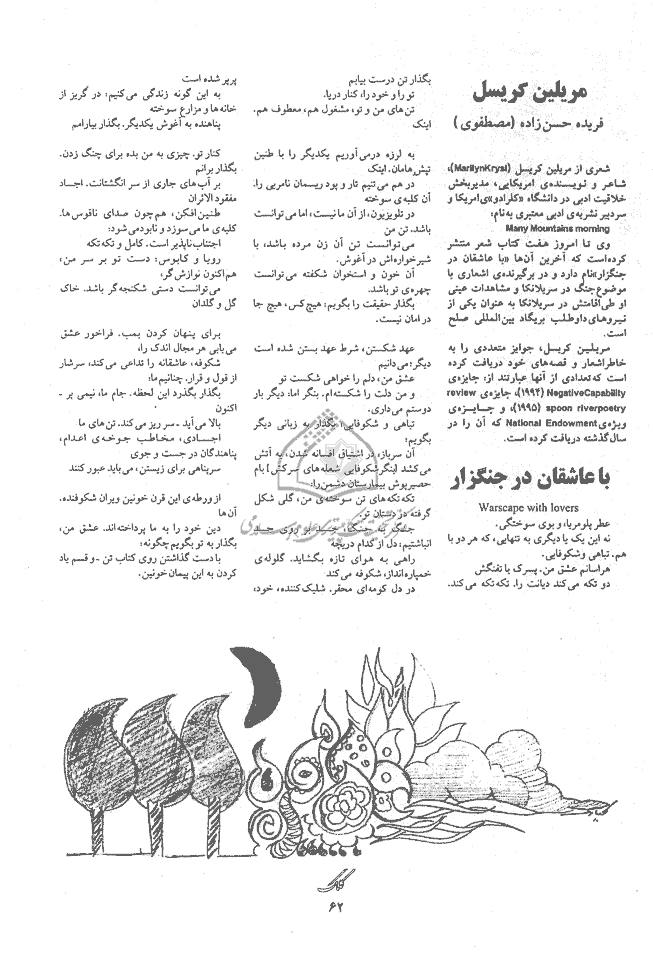 مریلین کریسل
فریده حسن‌زاده (مصطفوی)
شعری از مریلین کریسل (MarilynKrysl)،
شاعر و نویسنده‌ی امریکایی، مدیربخش
خلاقیت ادبی در دانشگاه «کلرادو»ی امریکا و
سردبیر نشریه‌ی ادبی معتبری به‌نام:
Many Mountains morning
وی تا امروز هفت کتاب شعر منتشر
کرده‌است که آخرین آن‌ها «با عاشقان در
جنگزار» نام دارد و در برگیرنده‌ی اشعاری با
موضوع جنگ در سریلانکا و مشاهدات عینی
او طی اقامتش در سریلانکا به عنوان یکی از
نیروهای داوطلب بریگاد بین‌المللی صلح
است.
مریلین کریسل، جوایز متعددی را به
خاطر اشعار و قصه‌های خود دریافت کرده
است که تعدادی از آنها عبارتند از: جایزه‌ی
NegativeCapability (۱۹۹۴)، جایزه‌ی review
spoon riverpoetry (۱۹۹۵)، و جایزه‌ی
ویژه‌ی National Endowment که آن را در
سال گذشته دریافت کرده است.
با عاشقان در جنگزار
Warscape with lovers
عطر پلومریا، و بوی سوختگی.
نه این یک یا دیگری به تنهایی، که هر دو با
هم. تباهی و شکوفایی.
هراسانم عشق من. پسرک با تفنگش
دو تکه می‌کند دیانت را. تکه‌تکه می‌کند.
بگذار تن درست بیابم
تو را و خود را، کنار دریا.
تن‌های من و تو، مشغول هم، معطوف هم.
اینک
به لرزه درمی‌آوریم یکدیگر را با طنین
تپش‌هامان. اینک
در هم می‌تنیم تار و پود ریسمان نامریی را.
آن کلبه‌ی سوخته
در تلویزیون، از آن ما نیست، اما می‌توانست
باشد. تن من
می‌توانست تن آن زن مرده باشد، با
شیرخواره‌اش در آغوش.
آن خون و استخوان شکفته می‌توانست
چهره‌ی تو باشد.
بگذار حقیقت را بگویم: هیچ کس، هیچ جا
در امان نیست.
عهد شکستن، شرط عهد بستن شده است
دیگر؛ می‌دانیم
عشق من، دلم را خواهی شکست تو
و من دلت را شکسته‌ام. بنگر اما: دیگر بار
دوستم می‌داری.
تباهی و شکوفایی: بگذار به زبانی دیگر
بگویم:
آن سرباز، در اشتیاق افسانه شدن، به آتش
می‌کشد [بنگر شکوفایی شعله‌های سرکش] بام
حصیرپوش بیمارستان دشمن را:
تکه‌تکه‌های تن سوخته‌ی من، گلی شکل
گرفته در دستان تو.
جنگ به جنگ، جسد بر روی جسد
انباشتیم: دل از کدام دریچه
راهی به هوای تازه بگشاید. گلوله‌ی
خمپاره‌انداز، شکوفه می‌کند
در دل کومه‌ای محقر. شلیک‌کننده، خود،
پرپر شده است
به این گونه زندگی می‌کنیم: در گریز از
خانه‌ها و مزارع سوخته
پناهنده به آغوش یکدیگر. بگذار بیارامم
کنار تو. چیزی به من بده برای چنگ زدن.
بگذار برانم
بر آب‌های جاری از سر انگشتانت. اجساد
مفقودالاثران
طنین‌افکن، هم‌چون صدای ناقوس‌ها.
کلبه‌ی ما می‌سوزد و نابود می‌شود:
اجتناب‌ناپذیر است. کامل و تکه‌تکه
رویا و کابوس: دست تو بر سر من،
هم‌اکنون نوازش‌گر،
می‌توانست دستی شکنجه‌گر باشد. خاک
گل و گلدان
برای پنهان کردن بمب. فراخور عشق
می‌یابی هر مجال اندک را،
شکوفه، عاشقانه را تداعی می‌کند، سرشار
از قول و قرار. چنانیم ما:
بگذار بگذرد این لحظه. جام ما، نیمی پر -
اکنون
بالا می‌آید - سر ریز می‌کند. تن‌های ما
اجسادی، مخاطب جوخه‌ی اعدام،
پناهندگان در جست و جوی
سرپناهی برای زیستن، می‌باید عبور کنند
از ورطه‌ی این قرن خونین ویران شکوفنده.
آن‌ها
دین خود را به ما پرداخته‌اند. عشق من،
بگذار به تو بگویم چگونه:
با دست گذاشتن روی کتاب تن - و قسم یاد
کردن به این پیمان خونین.
۶۲